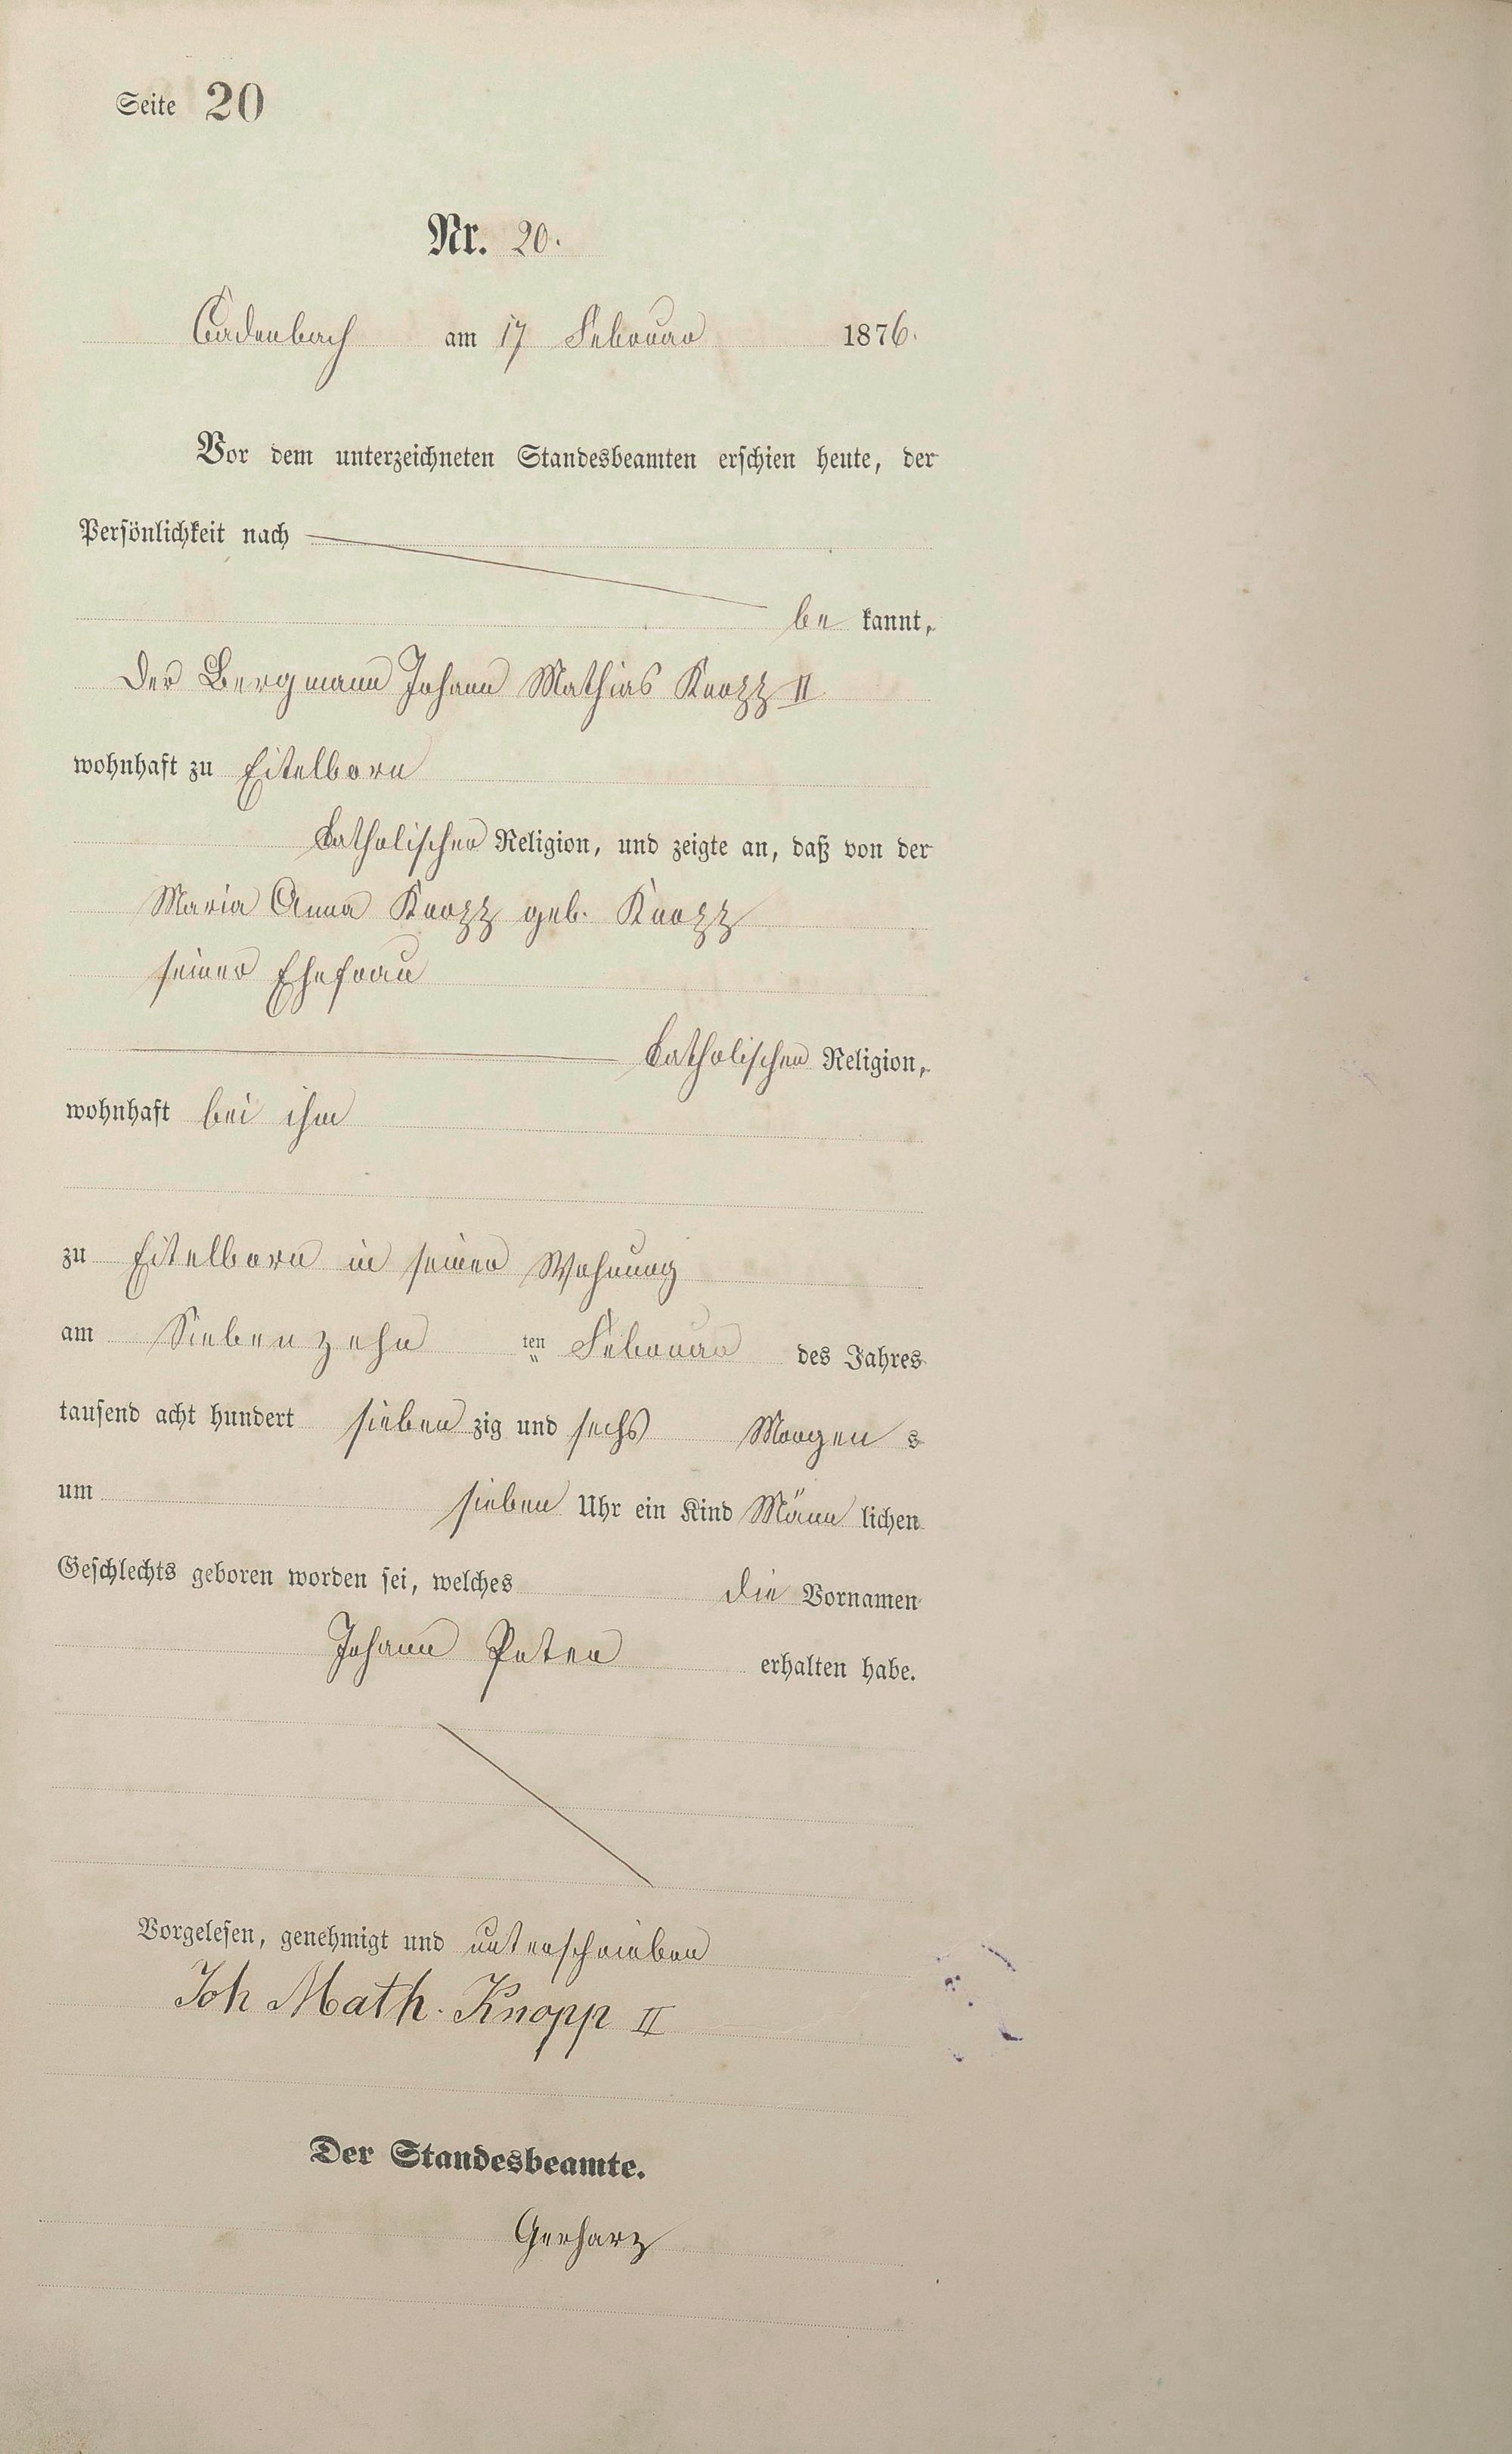 Seite 20
Nr. 20.
Cadenbach am 17 Februar 1876.
Vor dem unterzeichneten Standesbeamten erschien heute, der
Persönlichkeit nach
be kannt,
Der Bergmann Johann Mathias Knopp II
wohnhaft zu Eitelborn
katholischer Religion, und zeigte an, daß von der
Maria Anna Knopp geb. Knopp
seiner Ehefrau
katholischer Religion,
wohnhaft bei ihm
zu Eitelborn in seiner Wohnung
am Siebenzehn ten Februar des Jahres
tausend acht hundert sieben zig und sechs Morgen s
um sieben Uhr ein Kind Männ lichen
Geschlechts geboren worden sei, welches die Vornamen
Johann Peter erhalten habe.
Vorgelesen, genehmigt und unterschrieben
Joh Math. Knopp II
Der Standesbeamte.
Gerharz